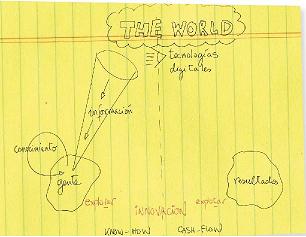 THE WORLD
tecnologías
digitales
información
conocimiento
gente
resultados
explorar
explotar
INNOVACION
KNOW-HOW
CASH-FLOW